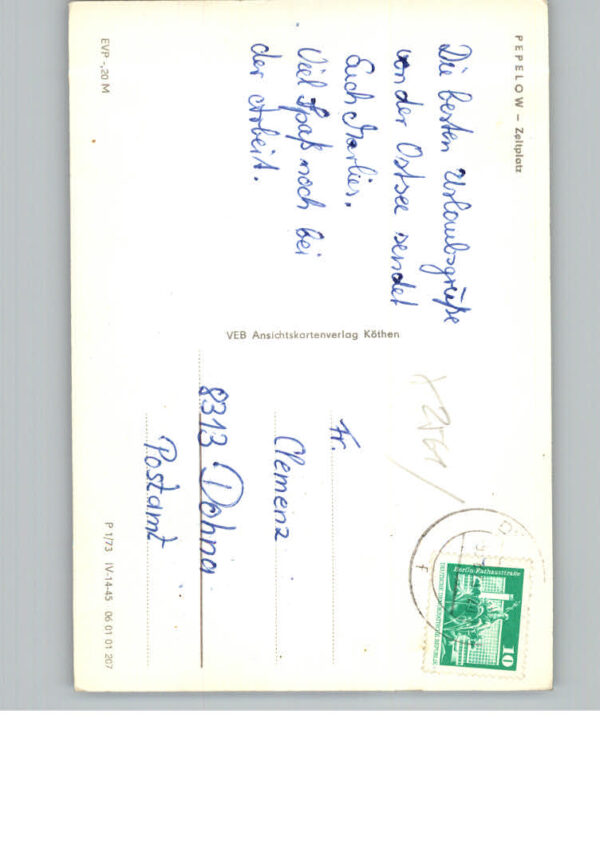 PEPELOW – Zeltplatz
Die besten Urlaubsgrüße
von der Ostsee sendet
Euch Marlies.
Viel Spaß noch bei
der Arbeit.
EVP -,20 M
VEB Ansichtskartenverlag Köthen
Fr.
Clemenz
8313 Dohna
Postamt
P 1/73 IV-14-45 06 01 01 207
Berlin-Rathausstraße
DEUTSCHE DEMOKRATISCHE REPUBLIK
10